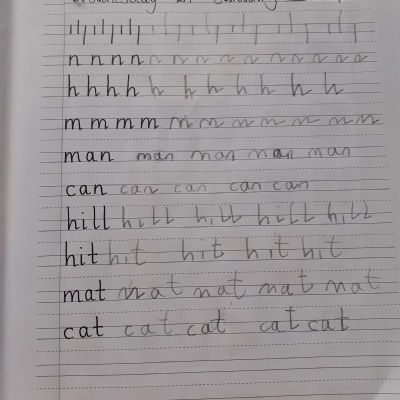 n n n n n n n n n n n n n
h h h h h h h h h h h
m m m m m m m m m m m
man man man man man
can can can can can
hill hill hill hill hill
hit hit hit hit hit
mat mat mat mat mat
cat cat cat cat cat